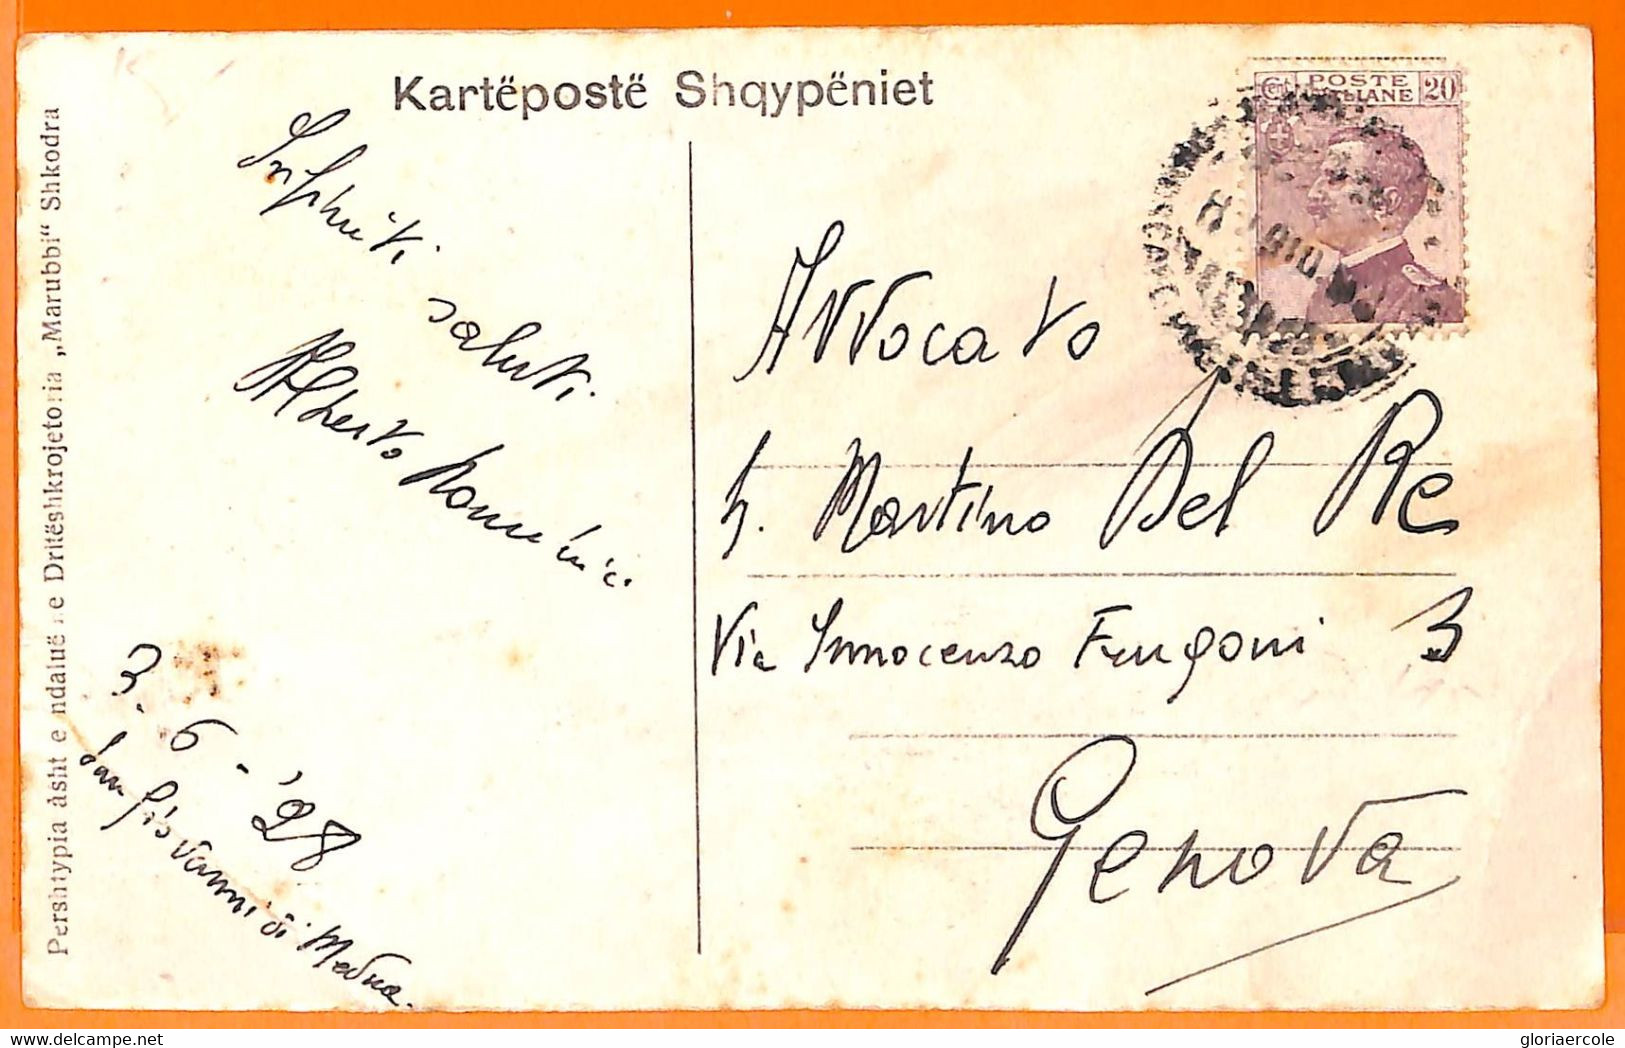 Kartëpostë Shqypëniet
Pershtypia âsht e ndaluë ne Dritëshkrojetoria „Marubbi“ Shkodra
saluti.
Alberto
3. 6 - '28
San Giovanni di Medua.
Cent POSTE ITALIANE 20
Avvocato
Martino Del Re
Via Innocenzo Frugoni 3
Genova
gloriaercole